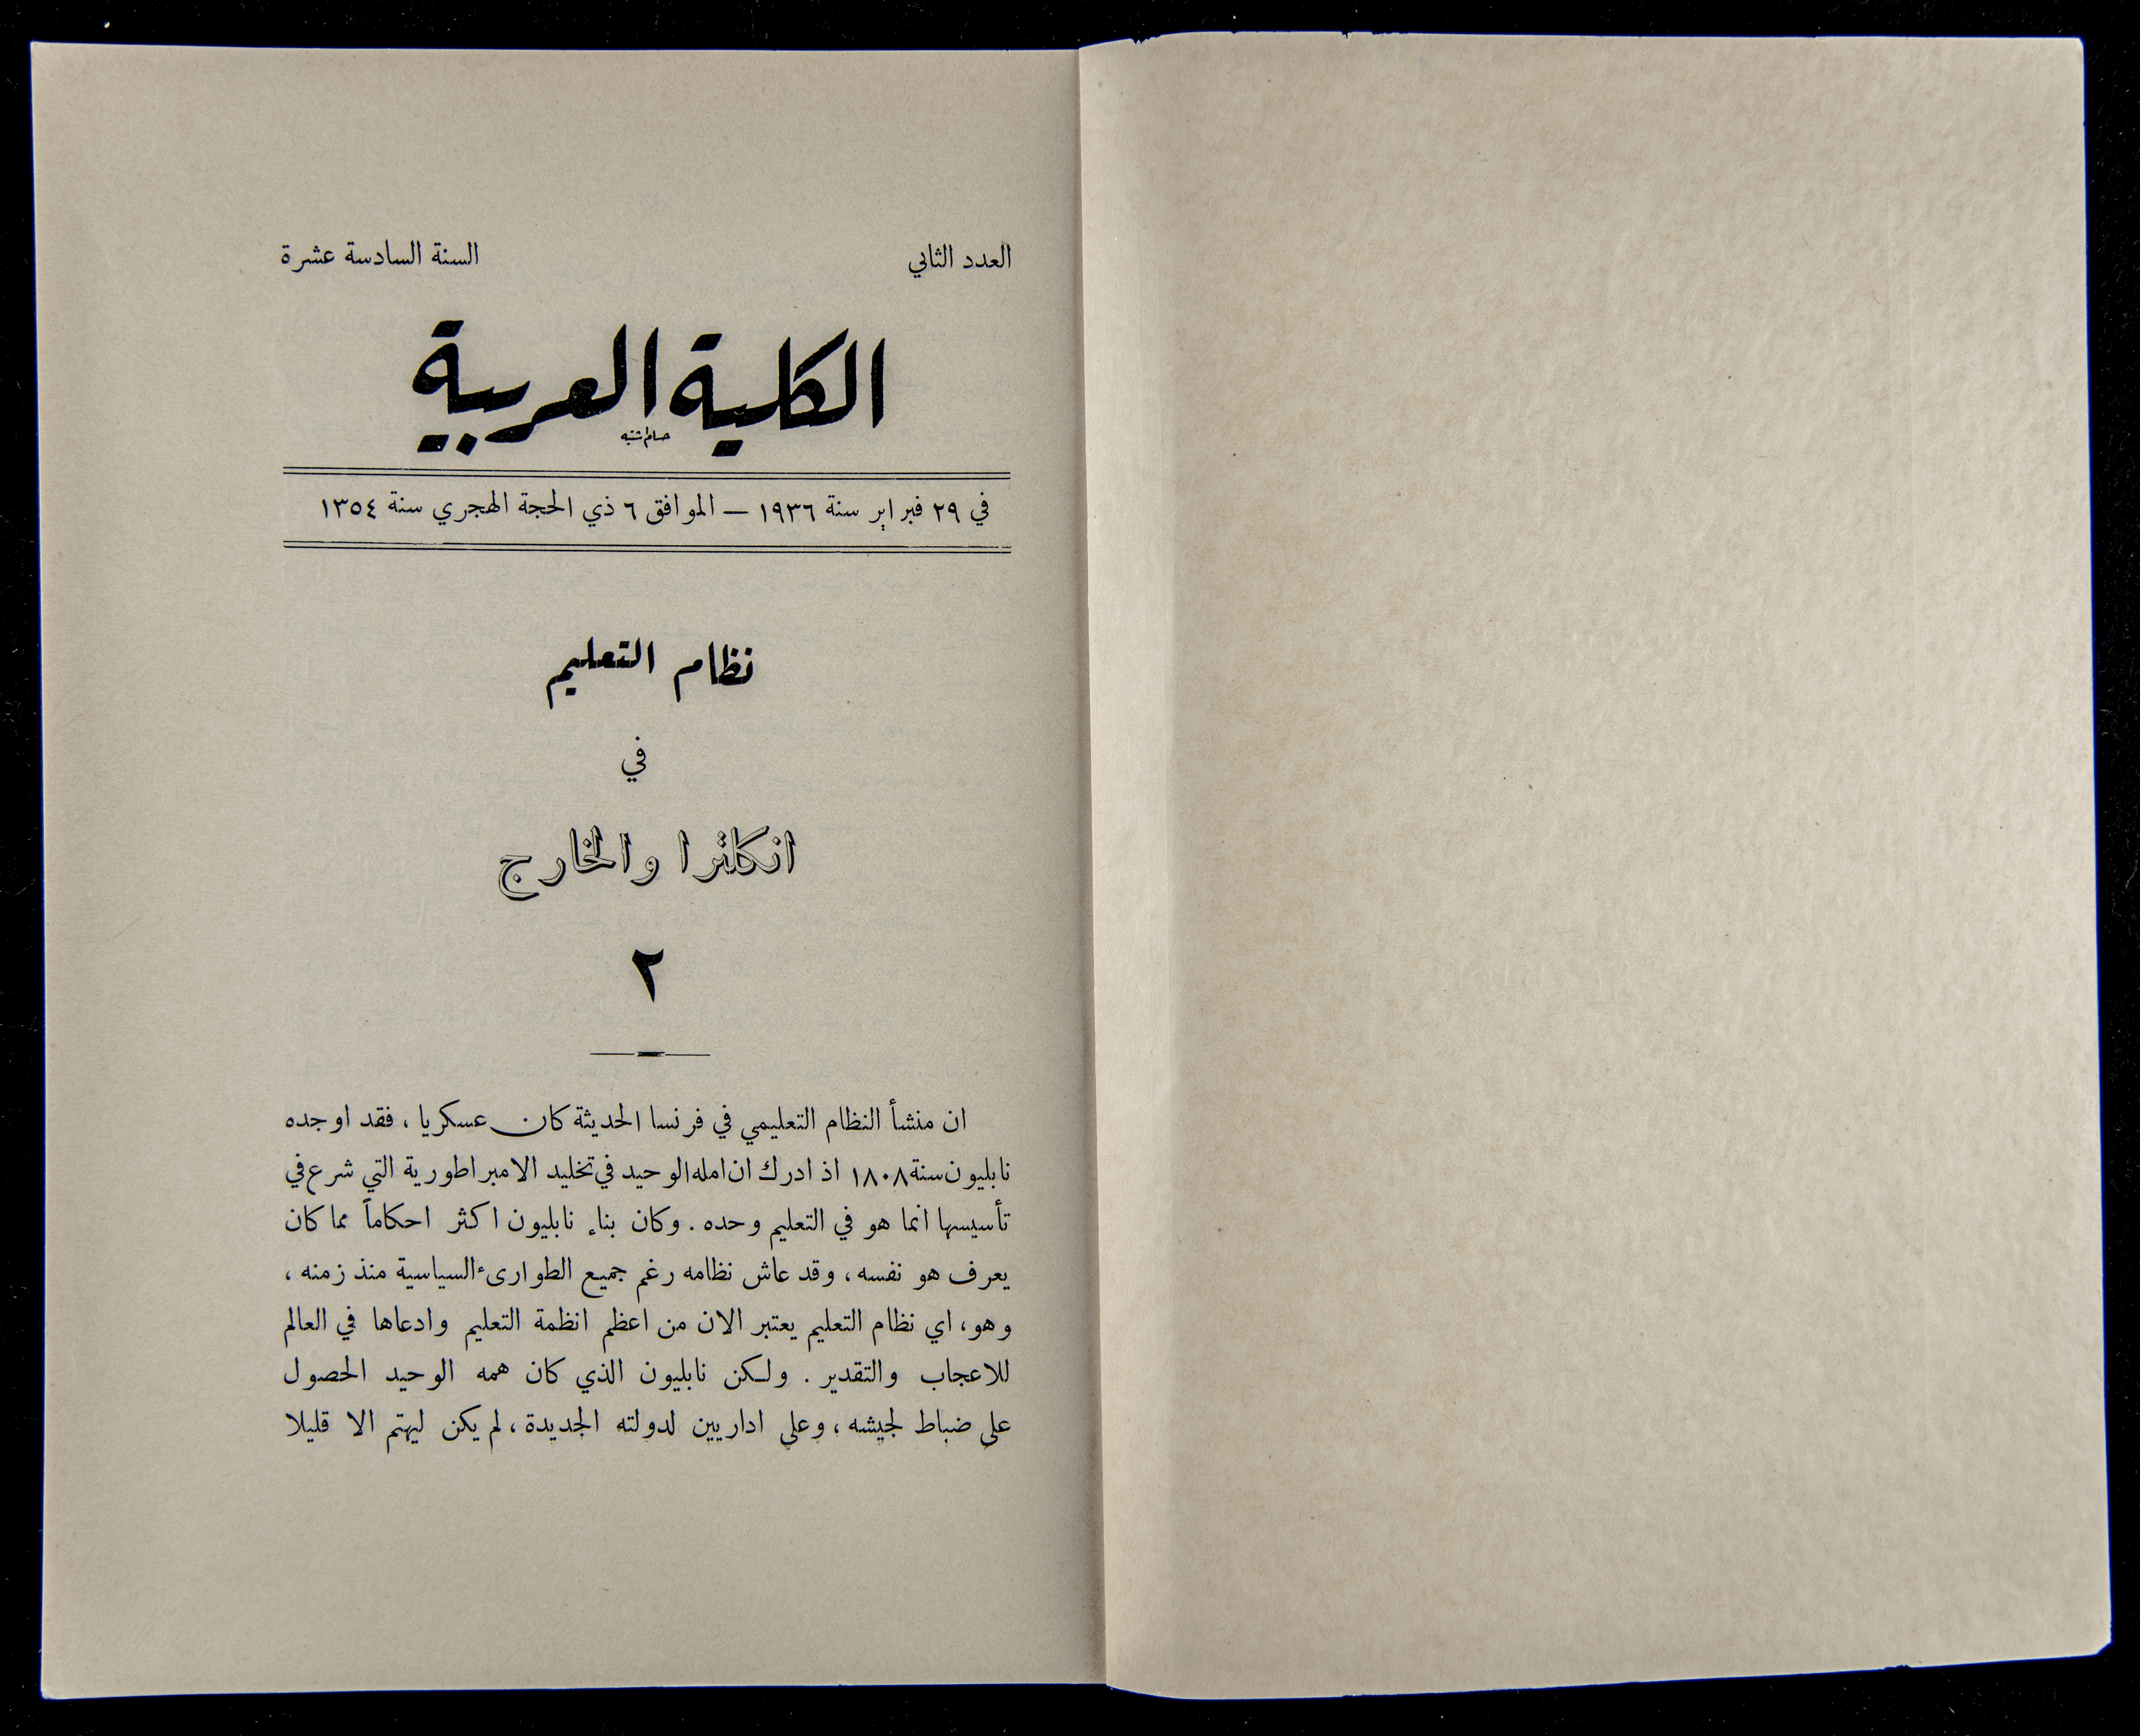 العدد الثاني
السنة السادسة عشرة
الكلية العربية
في ٢٩ فبراير سنة ١٩٣٦ — الموافق ٦ ذي الحجة الهجري سنة ١٣٥٤
نظام التعليم
في
انكلترا والخارج
٢
ان منشأ النظام التعليمي في فرنسا الحديثة كان عسكريا ، فقد اوجده
نابليون سنة ١٨٠٨ اذ ادرك ان امله الوحيد في تخليد الامبراطورية التي شرع في
تأسيسها انما هو في التعليم وحده . وكان بناء نابليون اكثر احكاماً مما كان
يعرف هو نفسه ، وقد عاش نظامه رغم جميع الطوارىء السياسية منذ زمنه ،
وهو ، اي نظام التعليم يعتبر الان من اعظم انظمة التعليم وادعاها في العالم
للاعجاب والتقدير . ولكن نابليون الذي كان همه الوحيد الحصول
على ضباط لجيشه ، وعلى اداريين لدولته الجديدة ، لم يكن ليهتم الا قليلا